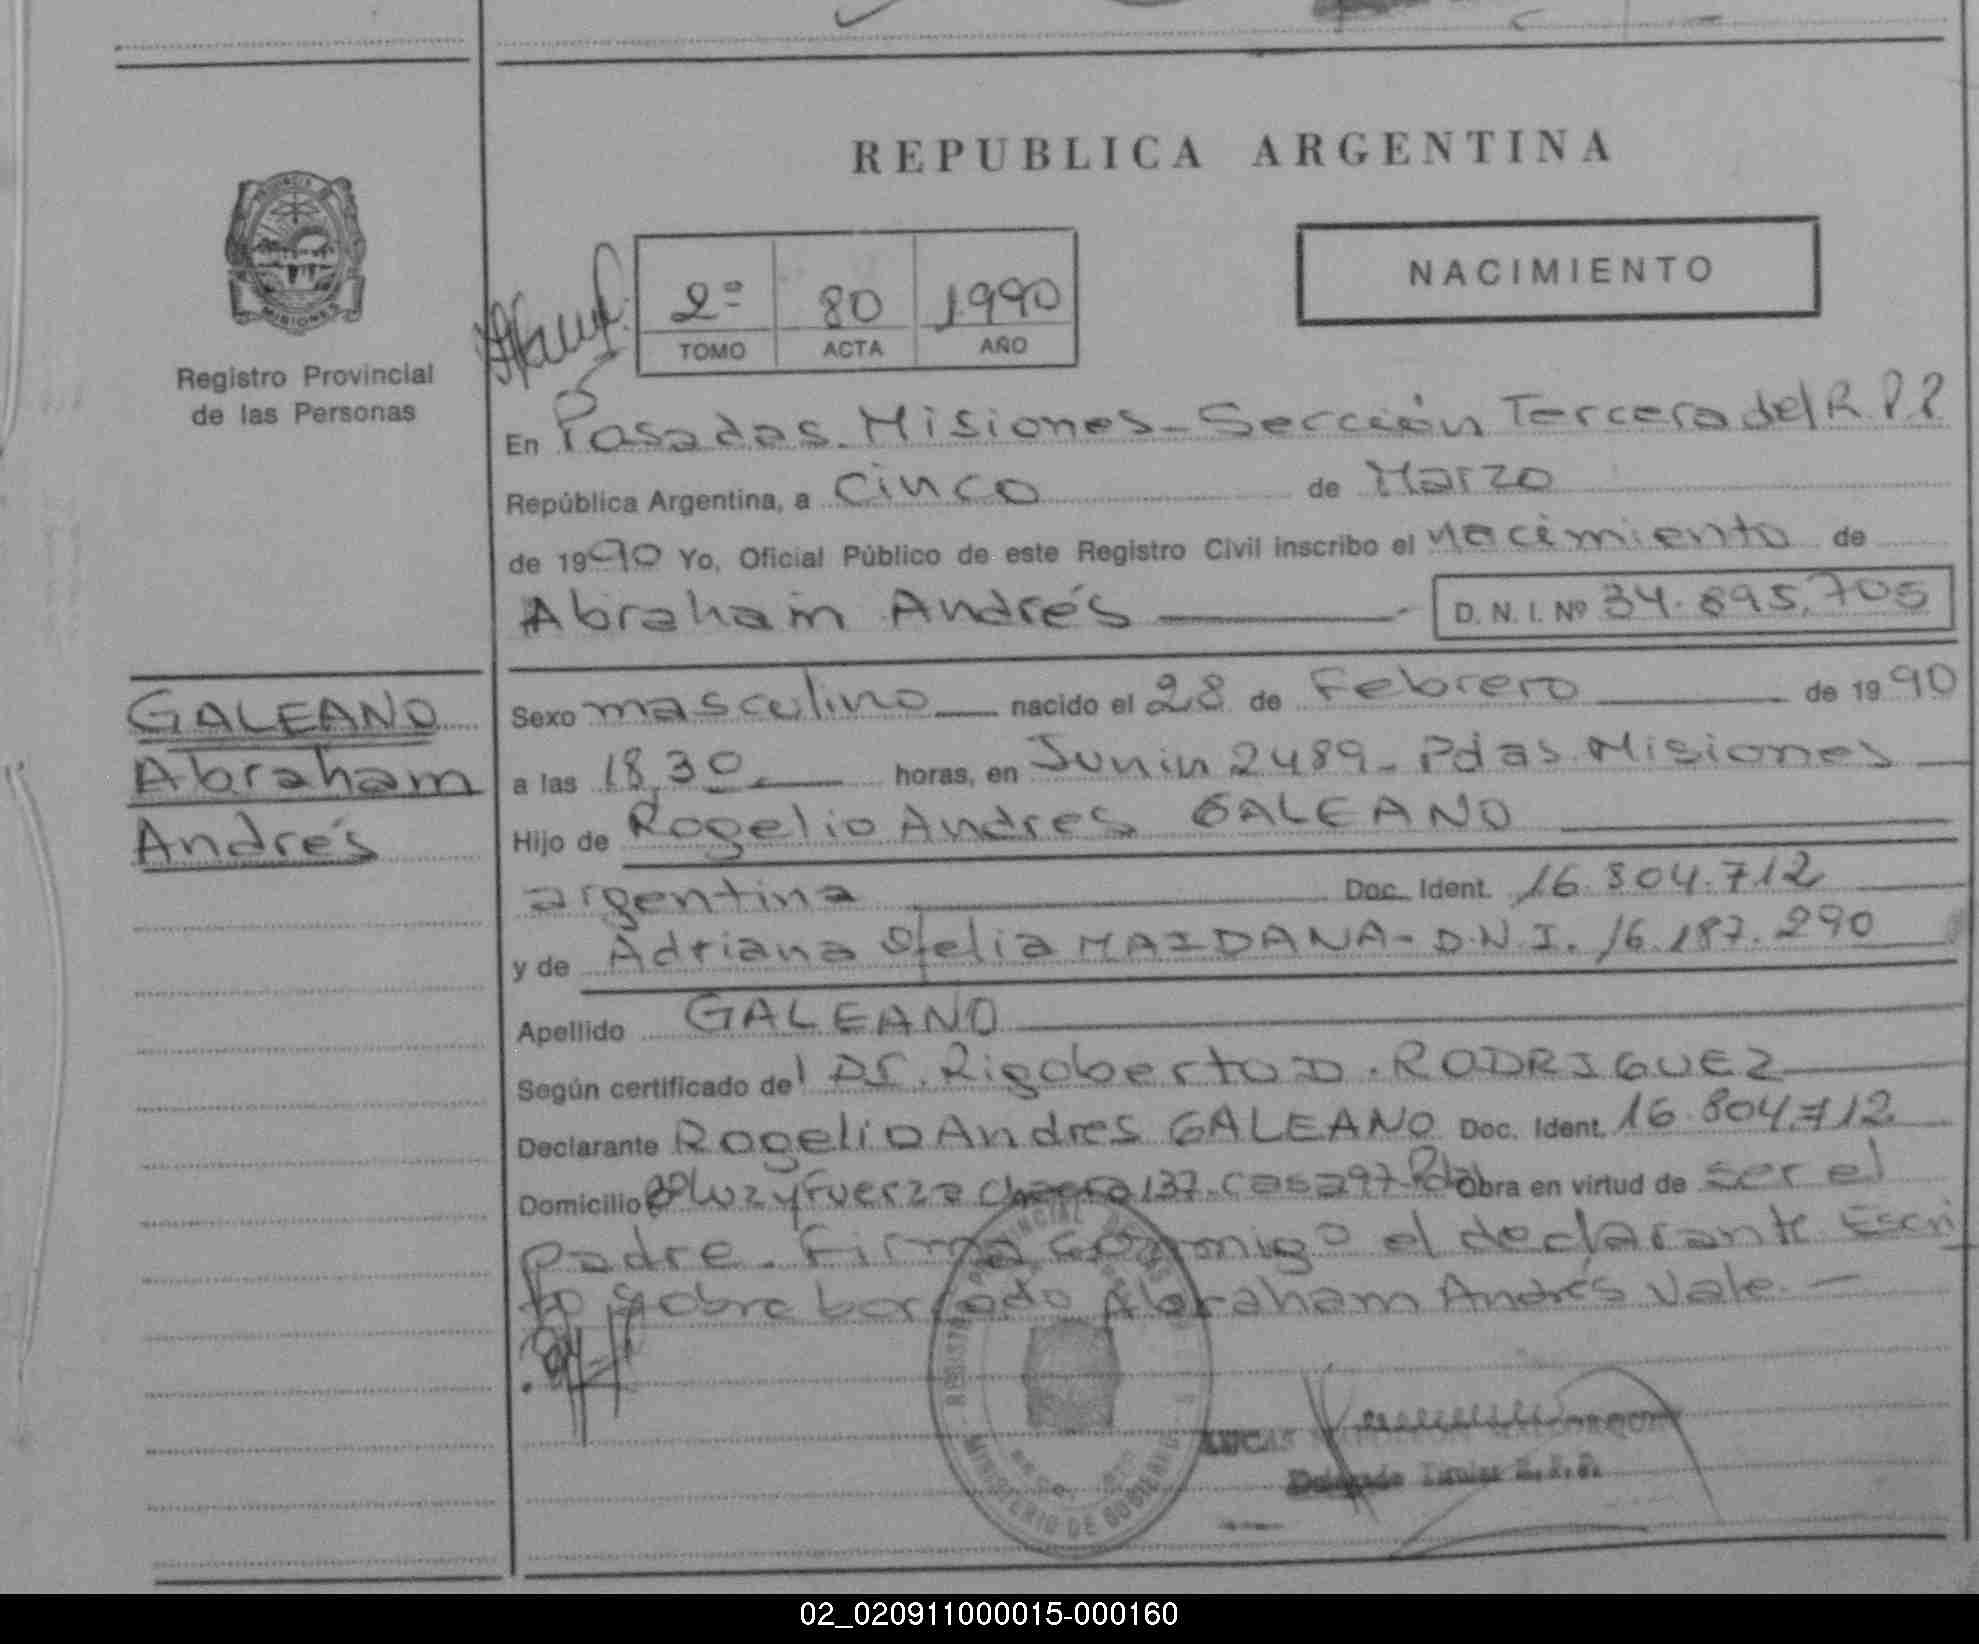 REPUBLICA ARGENTINA
NACIMIENTO
2º 80 1990
TOMO ACTA AÑO
MISIONES
Registro Provincial
de las Personas
En Posadas. Misiones - Sección Tercera del R.P.P
República Argentina, a cinco de Marzo
de 1990 Yo, Oficial Público de este Registro Civil inscribo el nacimiento de
Abraham Andrés D. N. I. Nº 34.895.705
GALEANO
Abraham
Andrés
Sexo masculino nacido el 28 de Febrero de 1990
a las 18,30 horas, en Junin 2489 - Pdas. Misiones
Hijo de Rogelio Andres GALEANO
argentina Doc. Ident. 16.804.712
y de Adriana Ofelia MAIDANA - D.N.I. 16.187.290
Apellido GALEANO
Según certificado del Dr. Rigoberto D. RODRIGUEZ
Declarante Rogelio Andres GALEANO Doc. Ident. 16.804.712
Domicilio Bº Luz y Fuerza chacra 137 - casa 97 - Pdas Obra en virtud de ser el
padre. Firma conmigo el declarante Escri
to sobre borrado Abraham Andrés Vale. -
MINISTERIO DE GOBIERNO
LUCAS
Delegado Titular R.P.P.
02_020911000015-000160